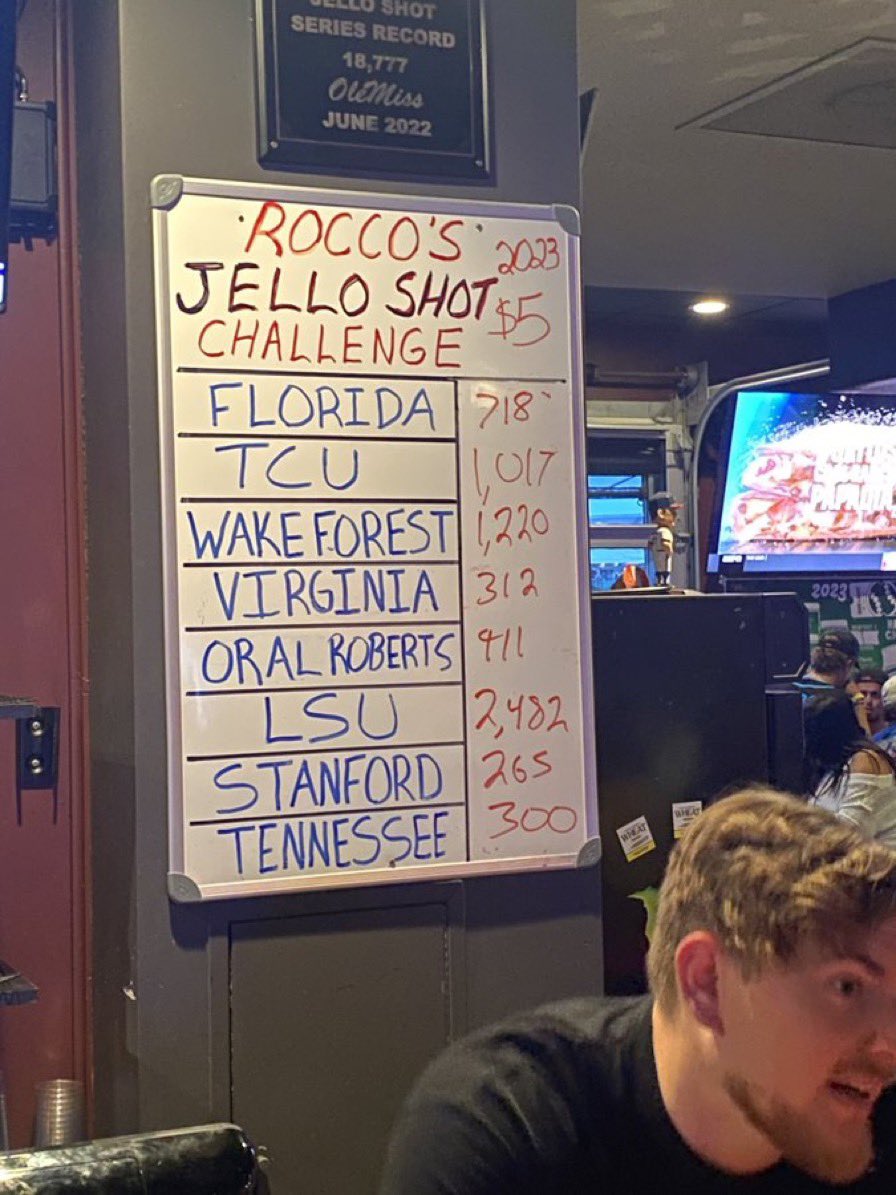 JELLO SHOT
SERIES RECORD
18,777
Ole Miss
JUNE 2022
ROCCO'S 2023
JELLO SHOT $5
CHALLENGE
FLORIDA 718
TCU 1,017
WAKE FOREST 1,220
VIRGINIA 312
ORAL ROBERTS 411
LSU 2,482
STANFORD 265
TENNESSEE 300
2023
WHEAT
WHEAT